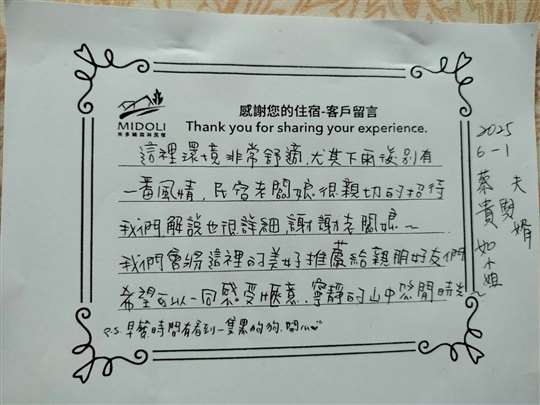 MIDOLI
米多綠森林民宿
感謝您的住宿-客戶留言
Thank you for sharing your experience.
這裡環境非常舒適,尤其下雨後別有
一番風情,民宿老闆娘很親切的招待
我們解說也很詳細謝謝老闆娘~
我們會將這裡的美好推薦給親朋好友們
希望可以一同感受愜意、寧靜的山中悠閒時光~
P.S.早餐時間有看到一隻黑的狗,
2025
6-1
蔡貴如小姐
夫賢婿